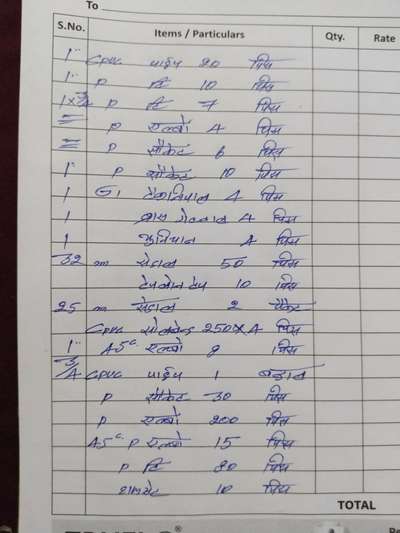 To
S.No. Items / Particulars Qty. Rate
1" Cpvc पाईप 20 पिस
1" P टि 10 पिस
1x3/4 P टि 7 पिस
= P एल्बो 4 पिस
= P सौकेट 6 पिस
1" P सौकेट 10 पिस
1 GI 4 पिस
1 ब्रास 4 पिस
1 युनियन 4 पिस
32 m 50 पिस
10 पिस
25 m 2 पैकेट
Cpvc 250 x 4 पिस
1" 45° एल्बो 8 पिस
3/4 Cpvc पाईप 1 बन्डल
P सौकेट 30 पिस
P एल्बो 200 पिस
45° P एल्बो 15 पिस
P टि 20 पिस
10 पिस
TOTAL